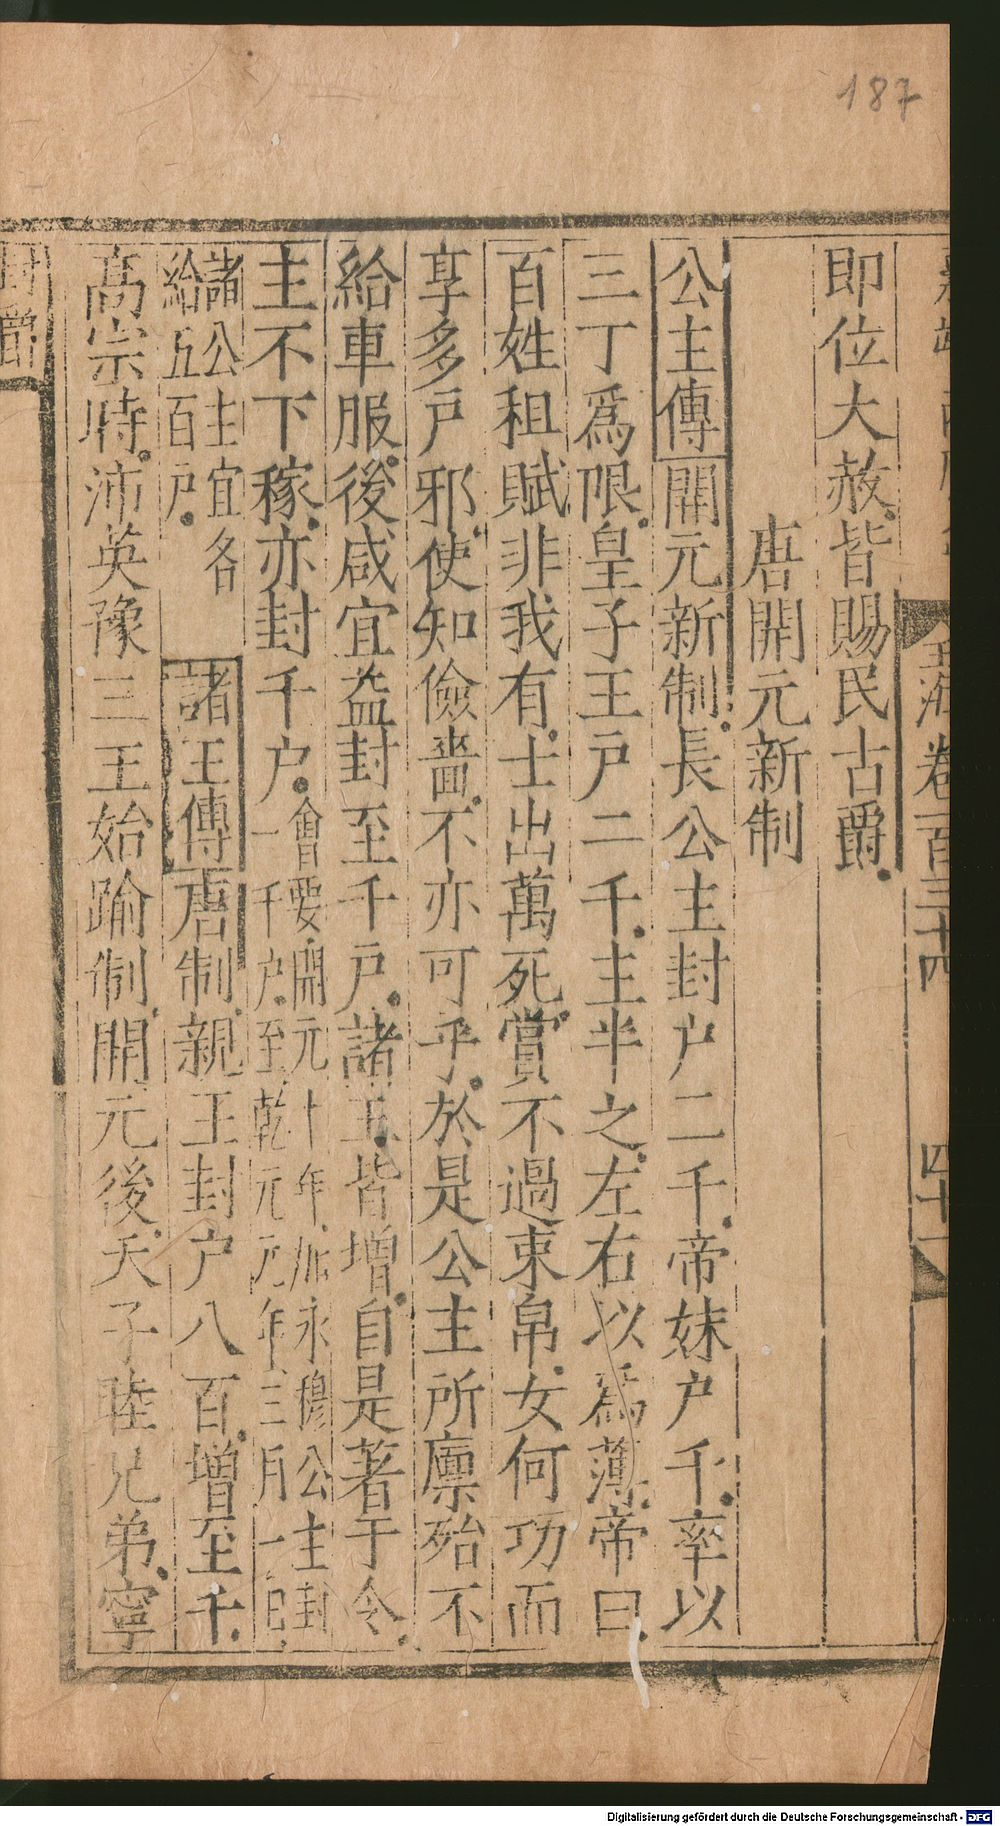 187
玉海卷一百三十四
四十一
即位大赦皆賜民古爵
唐開元新制
公主傳開元新制長公主封户二千帝妹户千率以
三丁爲限皇子王户二千主半之左右以爲薄帝曰
百姓租賦非我有士出萬死賞不過束帛女何功而
享多户邪使知儉嗇不亦可乎於是公主所廪殆不
給車服後咸宜益封至千户諸王皆增自是著于令
主不下稼亦封千户
會要開元十年永穆公主封
一千户至乾元元年三月一日
諸公主宜各
給五百户
諸王傳唐制親王封户八百增至千
高宗時沛英豫三王始踰制開元後天子睦兄弟寧
封爵
Digitalisierung gefördert durch die Deutsche Forschungsgemeinschaft - DFG